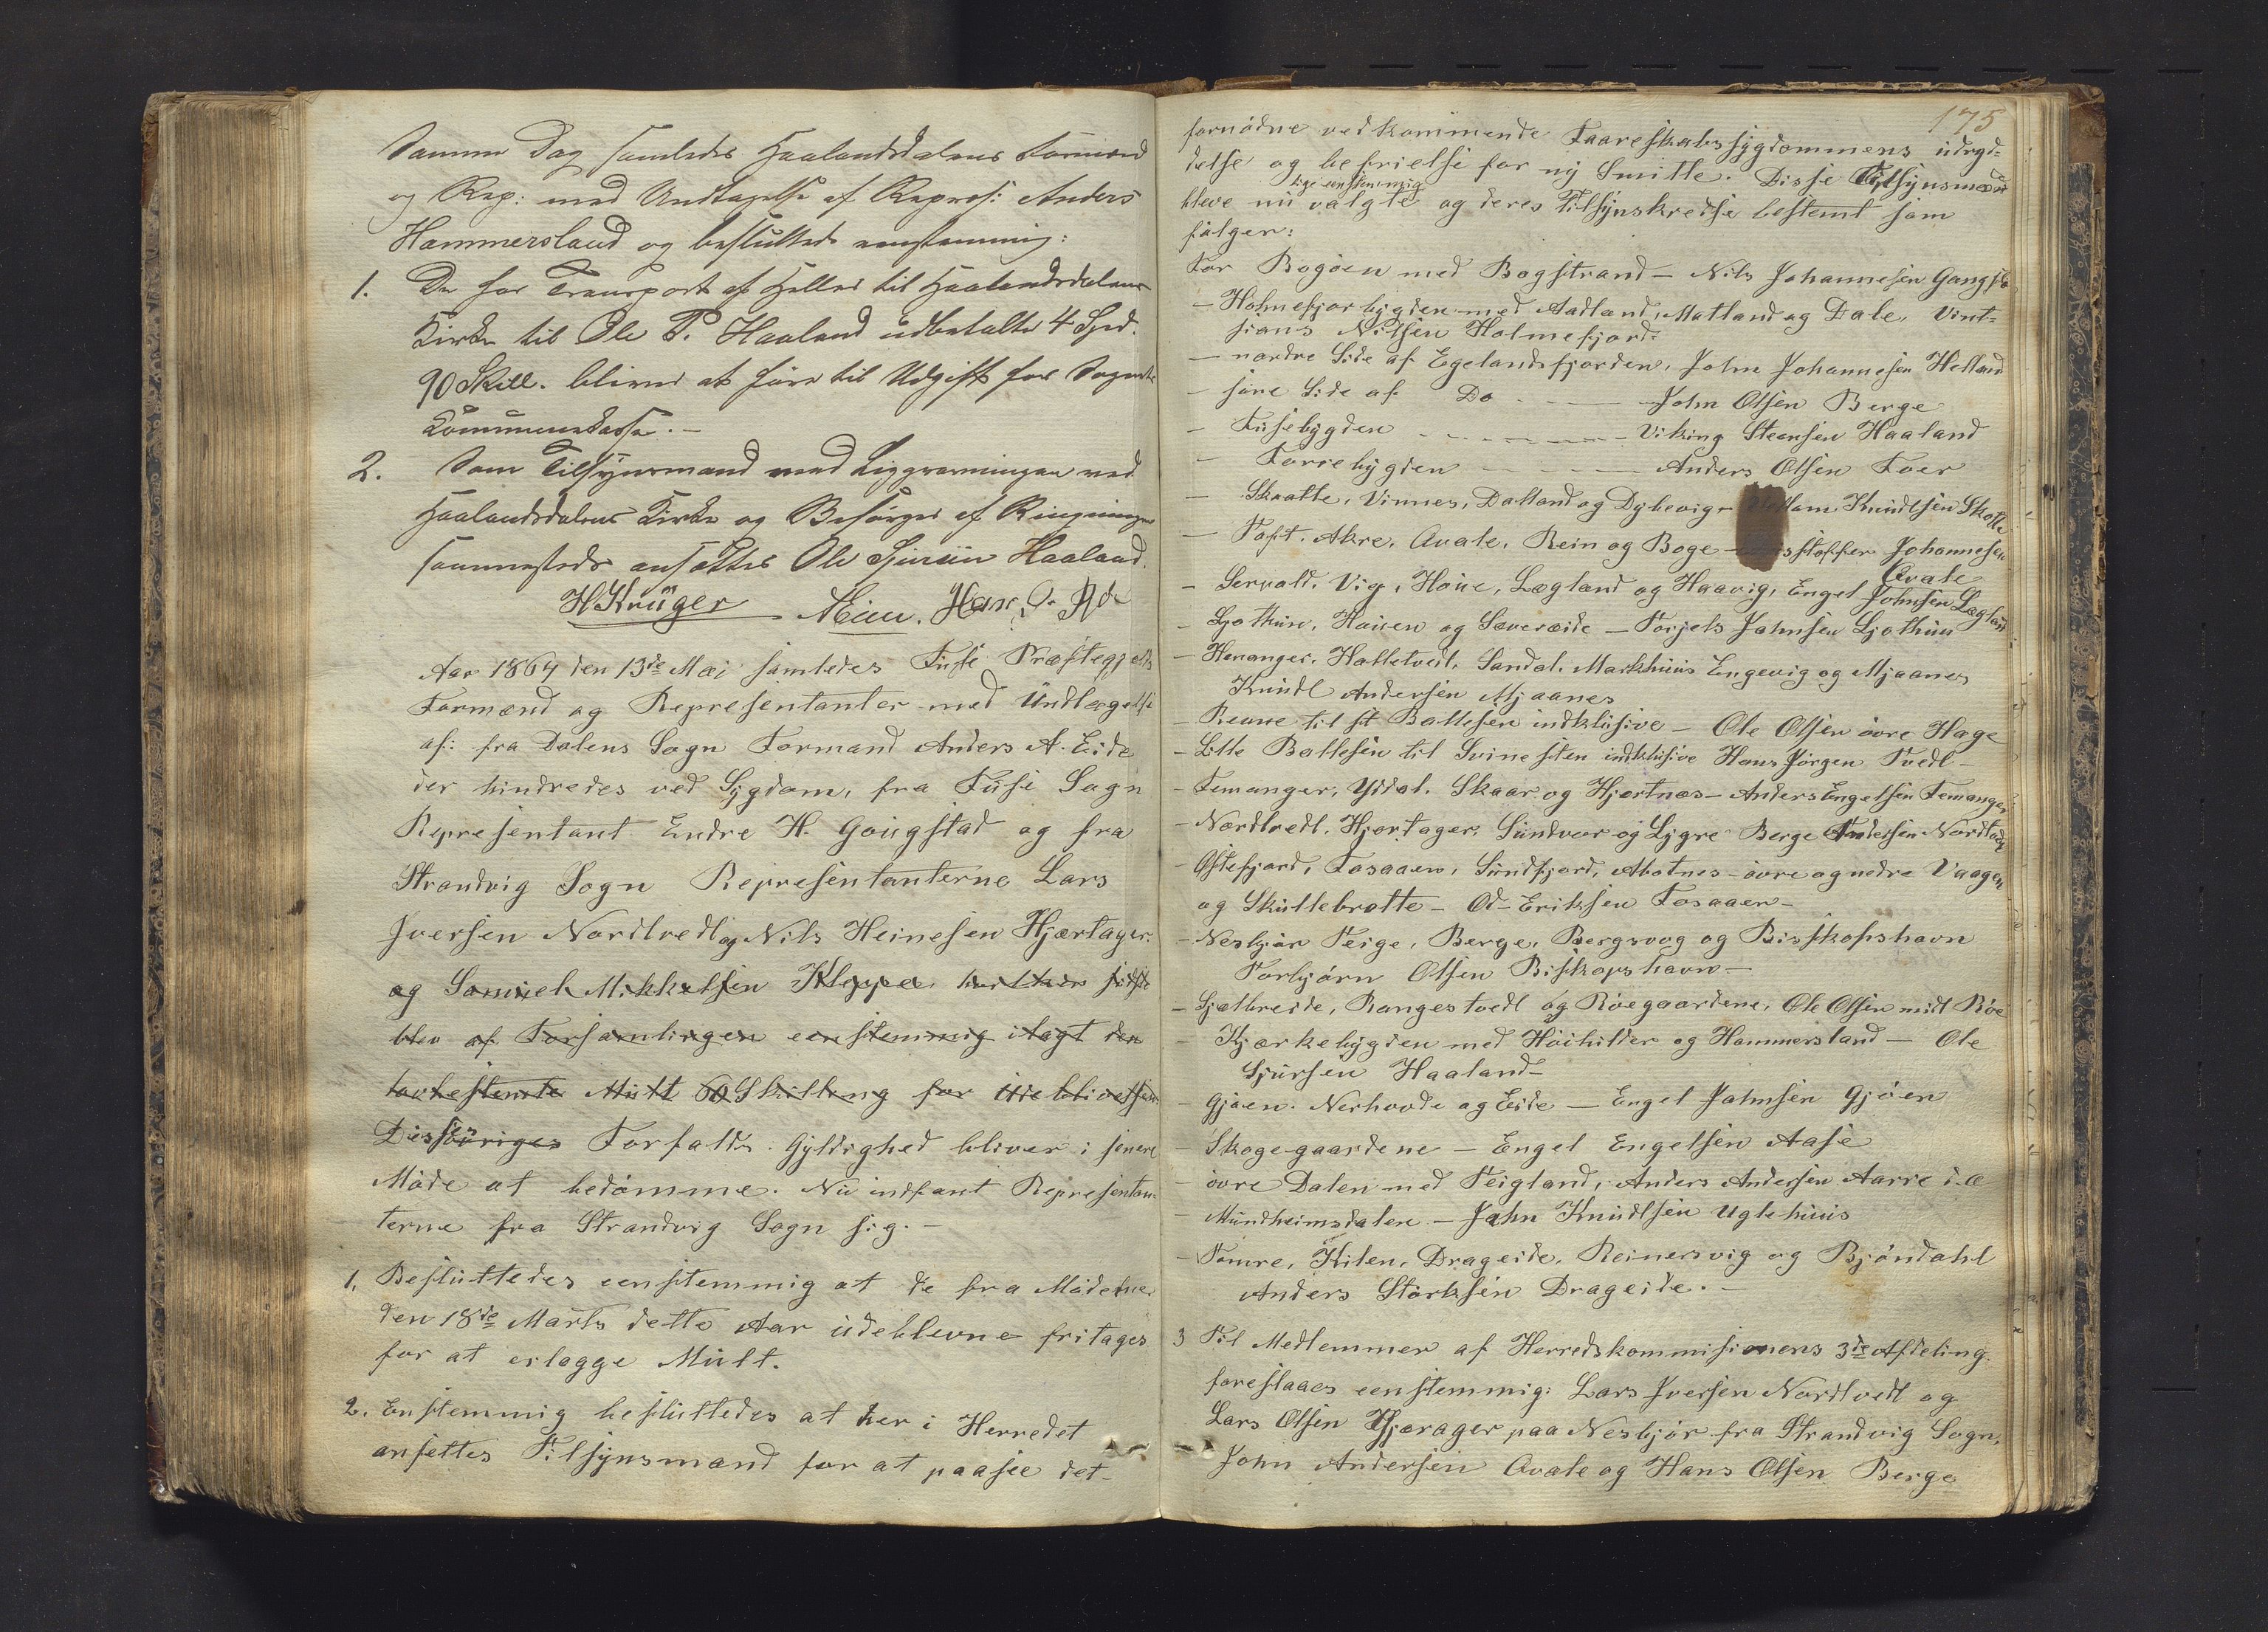 Samme Dag samledes Haalandsdalens Formænd
og Rep: med Undtagelse af Repræs: Anders
Hammersland og besluttede eenstemmig:
1. De for Transport af Heller til Haalandsdalens
Kirke til Ole P. Haaland udbetalte 4 Spd.
90 Skill. bliver at føre til Udgift for Sognets
Kommunekasse.-
2. Som Tilsynsmand med Liggravningen ved
Haalandsdalens Kirke og Besørger af Ringningen
sammesteds ansættes Ole Sjursen Haaland.
H Krüger Hans O.
Aar 1864 den 13de Mai samledes Fuse Præstegjelds
Formænd og Representanter med Undtagelse
af: fra Dalens Sogn Formand Anders A. Eide
der hindredes ved Sygdom, fra Fuse Sogn
Representant Endre H. Goügstad og fra
Strandvig Sogn Representanterne Lars
Iversen Nordtvedt og Nils Heinesen Hjærtager.
og Samüel Mikkelsen Kleppe hvilken sidste
blev af Forsamlingen eenstemmig ilagt den
lovbestemte Mült 60 Skilling for Udeblivelsen
Disses øvriges Forfalds Gyldighed bliver i senere
Møde at bedømme. Nü indfant Representan-
terne fra Strandvig Sogn sig.-
1. Beslüttedes eenstemmig at de fra Mødet
den 18de Marts dette Aar üdeblevne fritages
for at erlægge Mült.
2. Enstemmig beslüttedes at her i Herredet
ansettes Tilsynsmænd for at paasee det-
175
fornødne vedkommende Faareskabssygdommens üdryd-
delse og befrielse for ny Smitte. Disse Tilsynsmænd
lige eenstemmig
bleve nü valgte og deres Tilsynskredse bestemt som
følger:
For Bogøen med Bogstrand - Nils Johannesen Gangstø
- Holmefjorbygden med Aadland, Matland og Dale, Vint-
sians Nilsen Holmefjord.
- nordre Side af Egelandsfjorden, John Johannesen Helland
- søre Side af Do - - - John Olsen Berge
- Füsebygden - - - Viking Steensen Haaland
- Forrebygden - - - Anders Olsen Foer
- Skaatte, Vinnes, Dalland og Dybevig - Villam Knüdtsen Skotte
- Toft, Akre, Ovale, Rein og Boge - stoffer Johannesen
Ovale
- Servold, Vig, Hoüe, Lægland og Haavig, Engel Johnsen Lægland
- Ljothün, Hoüen og Sævereide - Torjels Johnsen Ljothün
- Henanger, Halletvedt, Sandal, Markhüüs Engevig og Mjaanes
Knüdt Andersen Mjaanes
- Revne til st Ballesen indklüsive - Ole Olsen øvre Hage
- Lille Ballesen til Svinesten indklüsive Hans Jörgen Tvedt -
- Femanger, Yddal, Skaar og Hjortnæs - Anders Engelsen Femanger
- Nordtvedt, Hjortager, Sündvor og Lygre Berge Andersen Nordtvedt
- Østefjord, Fosaaen, Sündfjord, Abotnes - øvre og nedre Vaagen
og Skullebrotte - Od- Eriksen Fosaaen -
- Nesbjør Teige, Berge, Bergsvog og Bisskopshavn
Torbjørn Olsen Biskopshavn -
- Gjelbreide, Rangestvedt og Röegaardene, Ole Olsen midt Röe
- Kjærkebygden med Höihilder og Hammersland - Ole
Sjürsen Haaland -
- Gjøen, Nerhovde og Eide - Engel Johnsen Gjøen
- Skoge-gaardene - Engel Engelsen Aase
- øvre Dalen med Teigland, Anders Andersen Aarre d.æ
- Mündheimsdalen - John Knüdtsen Uglehüüs
- Tomre, Kilen, Drageide, Reinersvig og Bjöndahl
Anders Störksen Drageide. -
3 Til Medlemmer af Herredskommisionens 3de Afdeling
foreslaaes eenstemmig: Lars Iversen Nordtvedt og
Lars Olsen Hjærager paa Nesbjør fra Strandvig Sogn,
John Andersen Ovale og Hans Olsen Berge